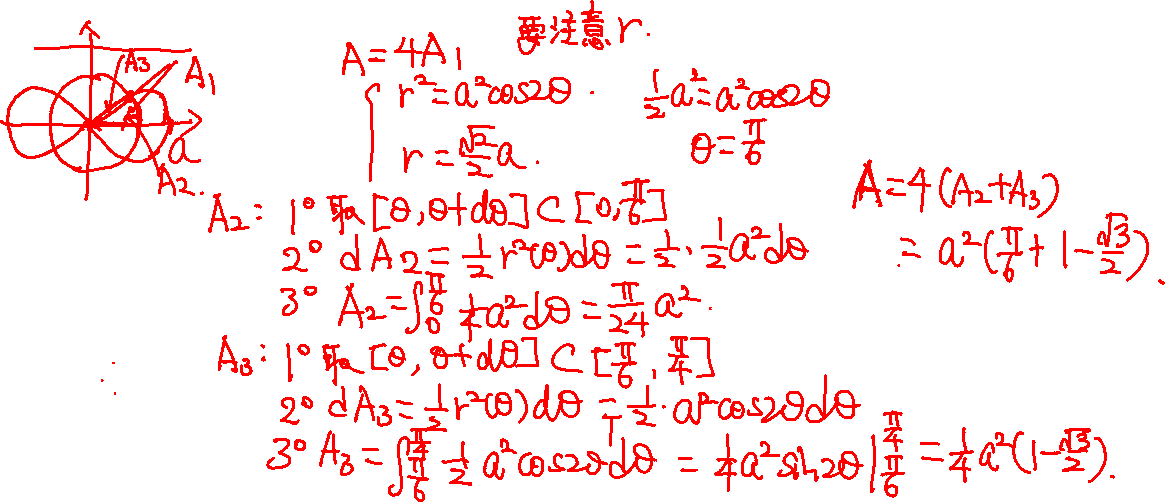 要注意r.
A=4A₁
A₃ A₁
{ r²=a²cos2θ. ½a²=a²cos2θ
r=√2/2 a. θ=π/6
a
A₂.
A₂: 1° 取[θ,θ+dθ]⊂[0,π/6]
2° dA₂=½r²(θ)dθ=½·½a²dθ
3° A₂=∫₀^(π/6) ¼a²dθ=π/24 a².
A=4(A₂+A₃)
=a²(π/6+1-√3/2).
A₃: 1° 取[θ,θ+dθ]⊂[π/6,π/4]
2° dA₃=½r²(θ)dθ=½·a²cos2θdθ
3° A₃=∫_(π/6)^(π/4) ½a²cos2θdθ=¼a²sin2θ|_(π/6)^(π/4)=¼a²(1-√3/2).